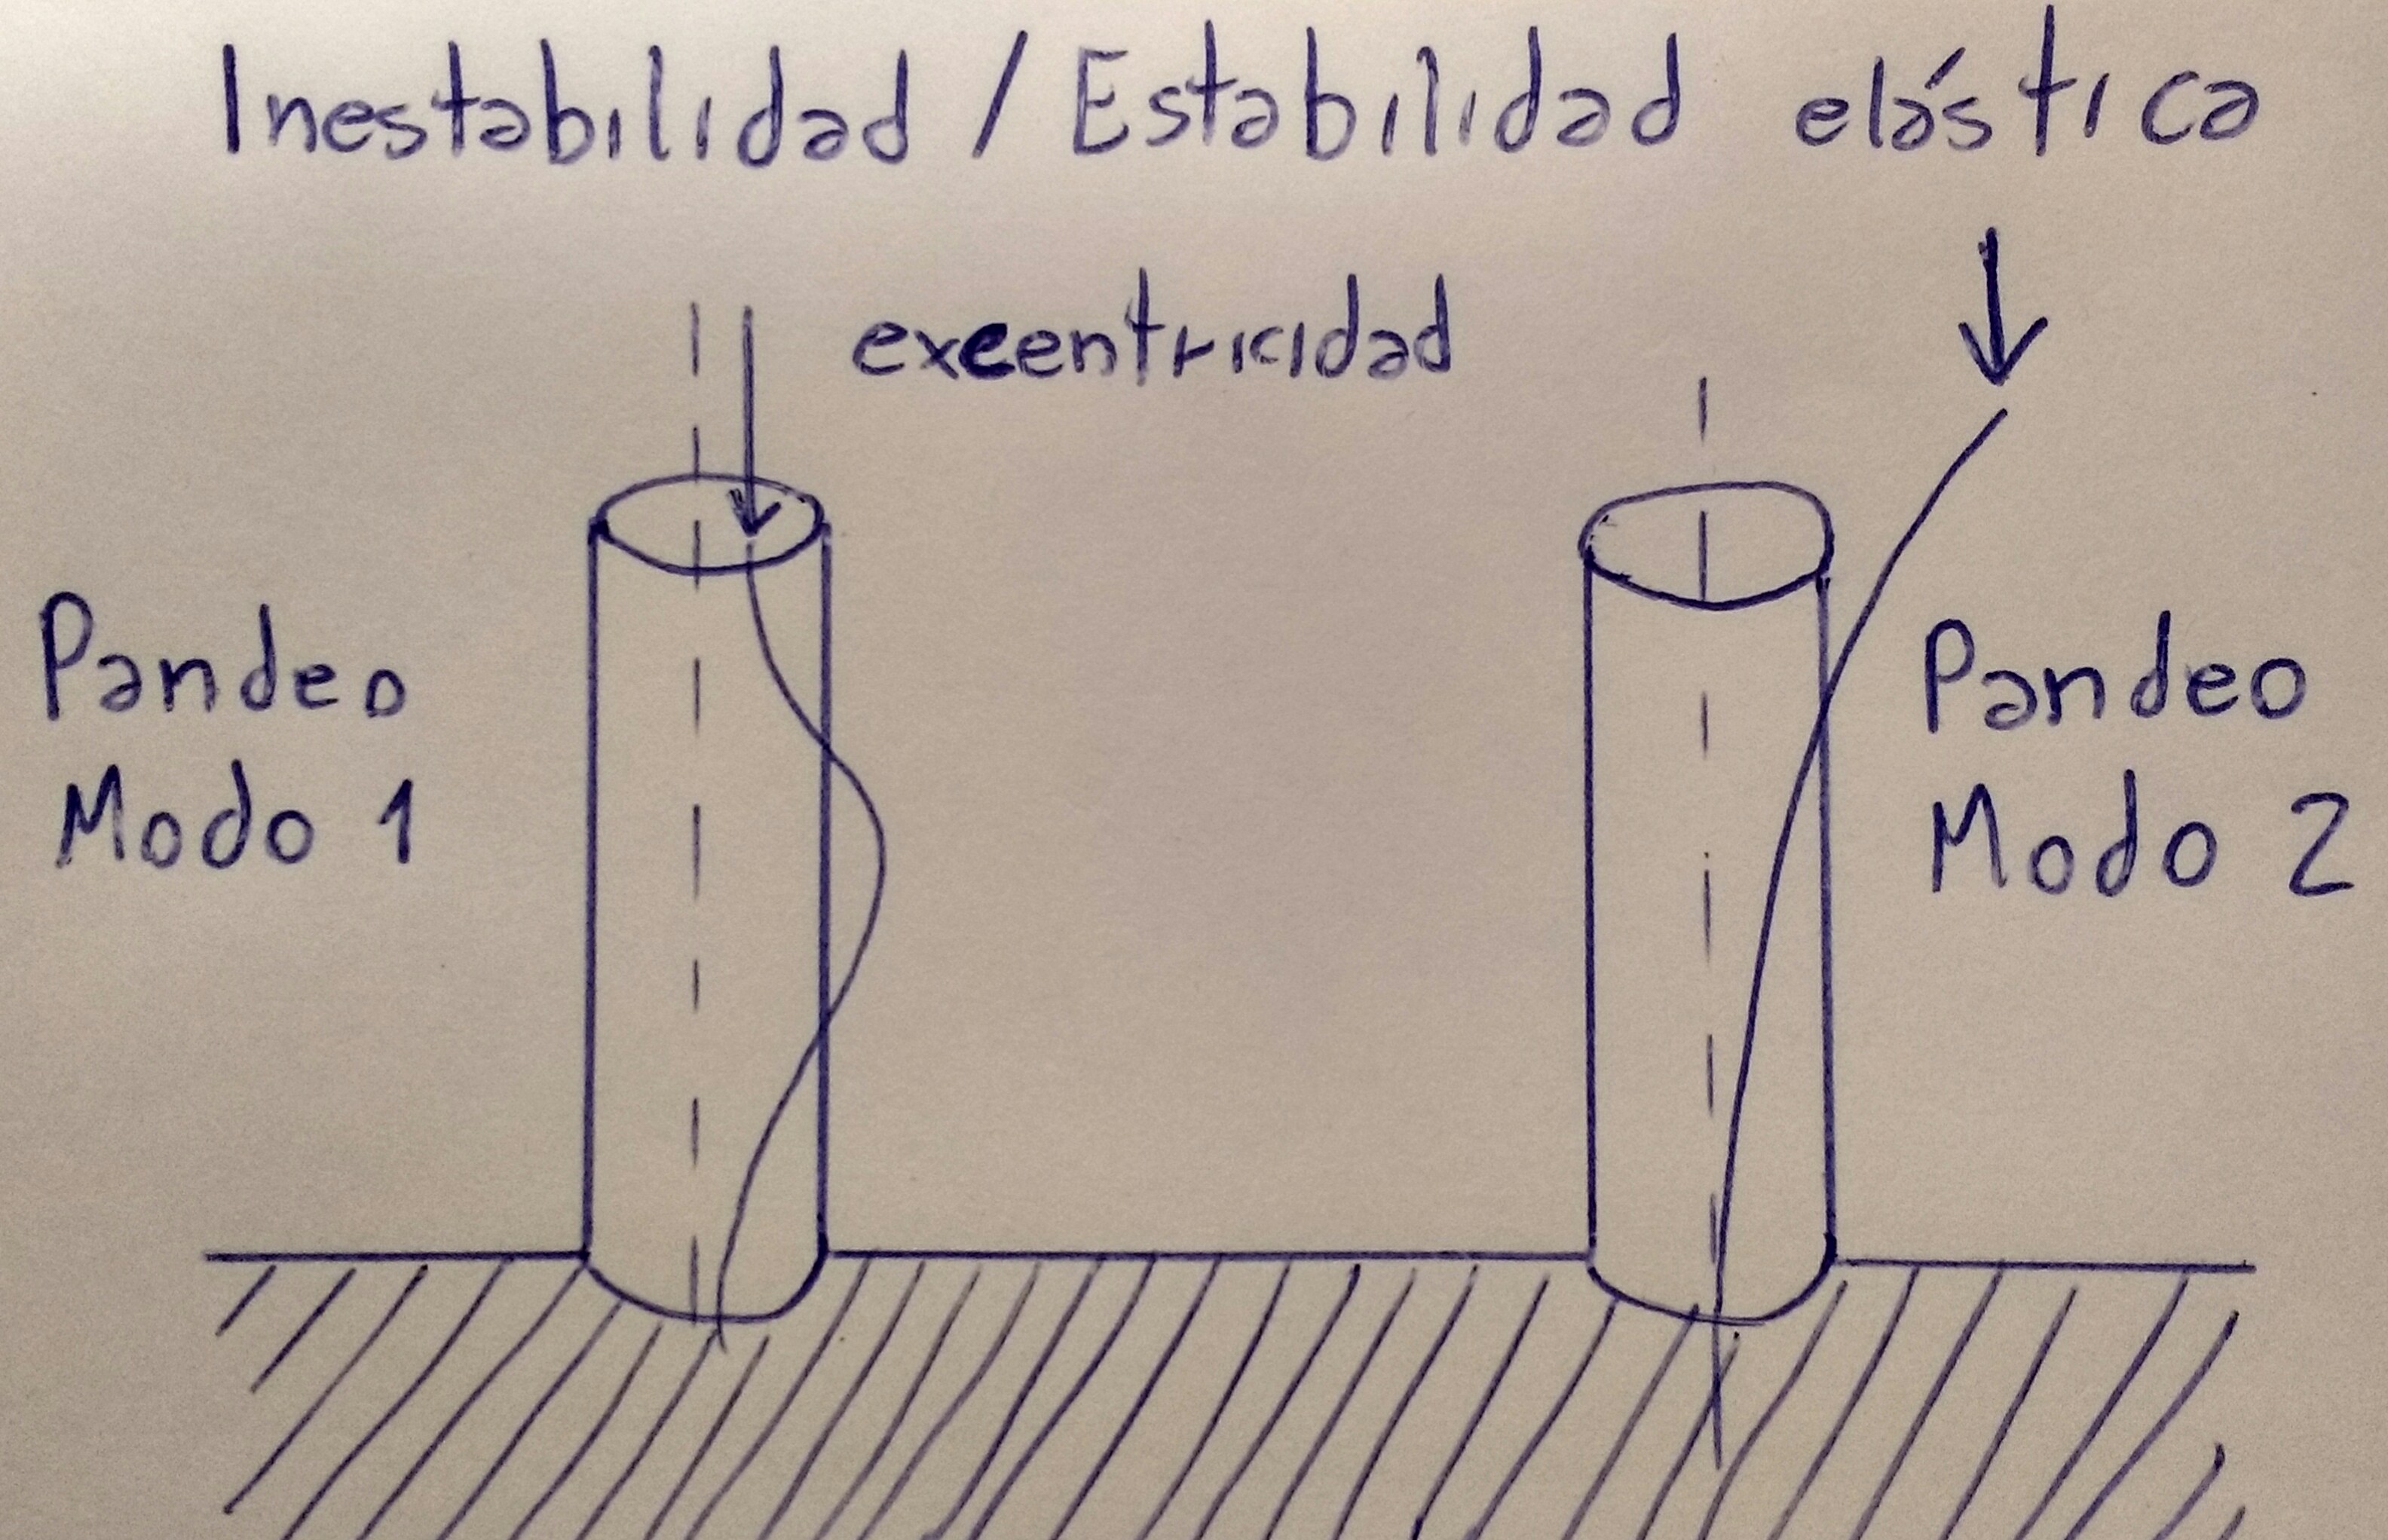 Inestabilidad / Estabilidad elástica
excentricidad
Pandeo
Modo 1
Pandeo
Modo 2